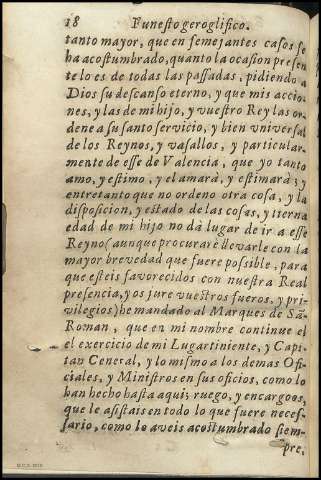 18 Funesto geroglifico.
tanto mayor, que en semejantes casos se
ha acostumbrado, quanto la ocasion presen
te lo es de todas las passadas, pidiendo a
Dios su descanso eterno, y que mis accio
nes, y las de mi hijo, y vuestro Rey las or
dene a su santo servicio, y bien vniversal
de los Reynos, y vasallos, y particular-
mente de esse de Valencia, que yo tanto
amo, y estimo, y el amarà, y estimarà; y
entretanto que no ordeno otra cosa, y la
disposicion, y estado de las cosas, y tierna
edad de mi hijo no dà lugar de ir a esse
Reyno (aunque procurarè llevarle con la
mayor brevedad que fuere possible, para
que esteis favorecidos con nuestra Real
presencia, y os jure vuestros fueros, y pri-
vilegios) he mandado al Marques de Sã
Roman, que en mi nombre continue el
el exercicio de mi Lugartiniente, y Capi-
tan General, y lo mismo a los demas Ofi-
ciales, y Ministros en sus oficios, como lo
han hecho hasta aqui; ruego, y encargoos,
que le assistais en todo lo que fuere neces-
sario, como lo aveis acostumbrado siem-
pre,